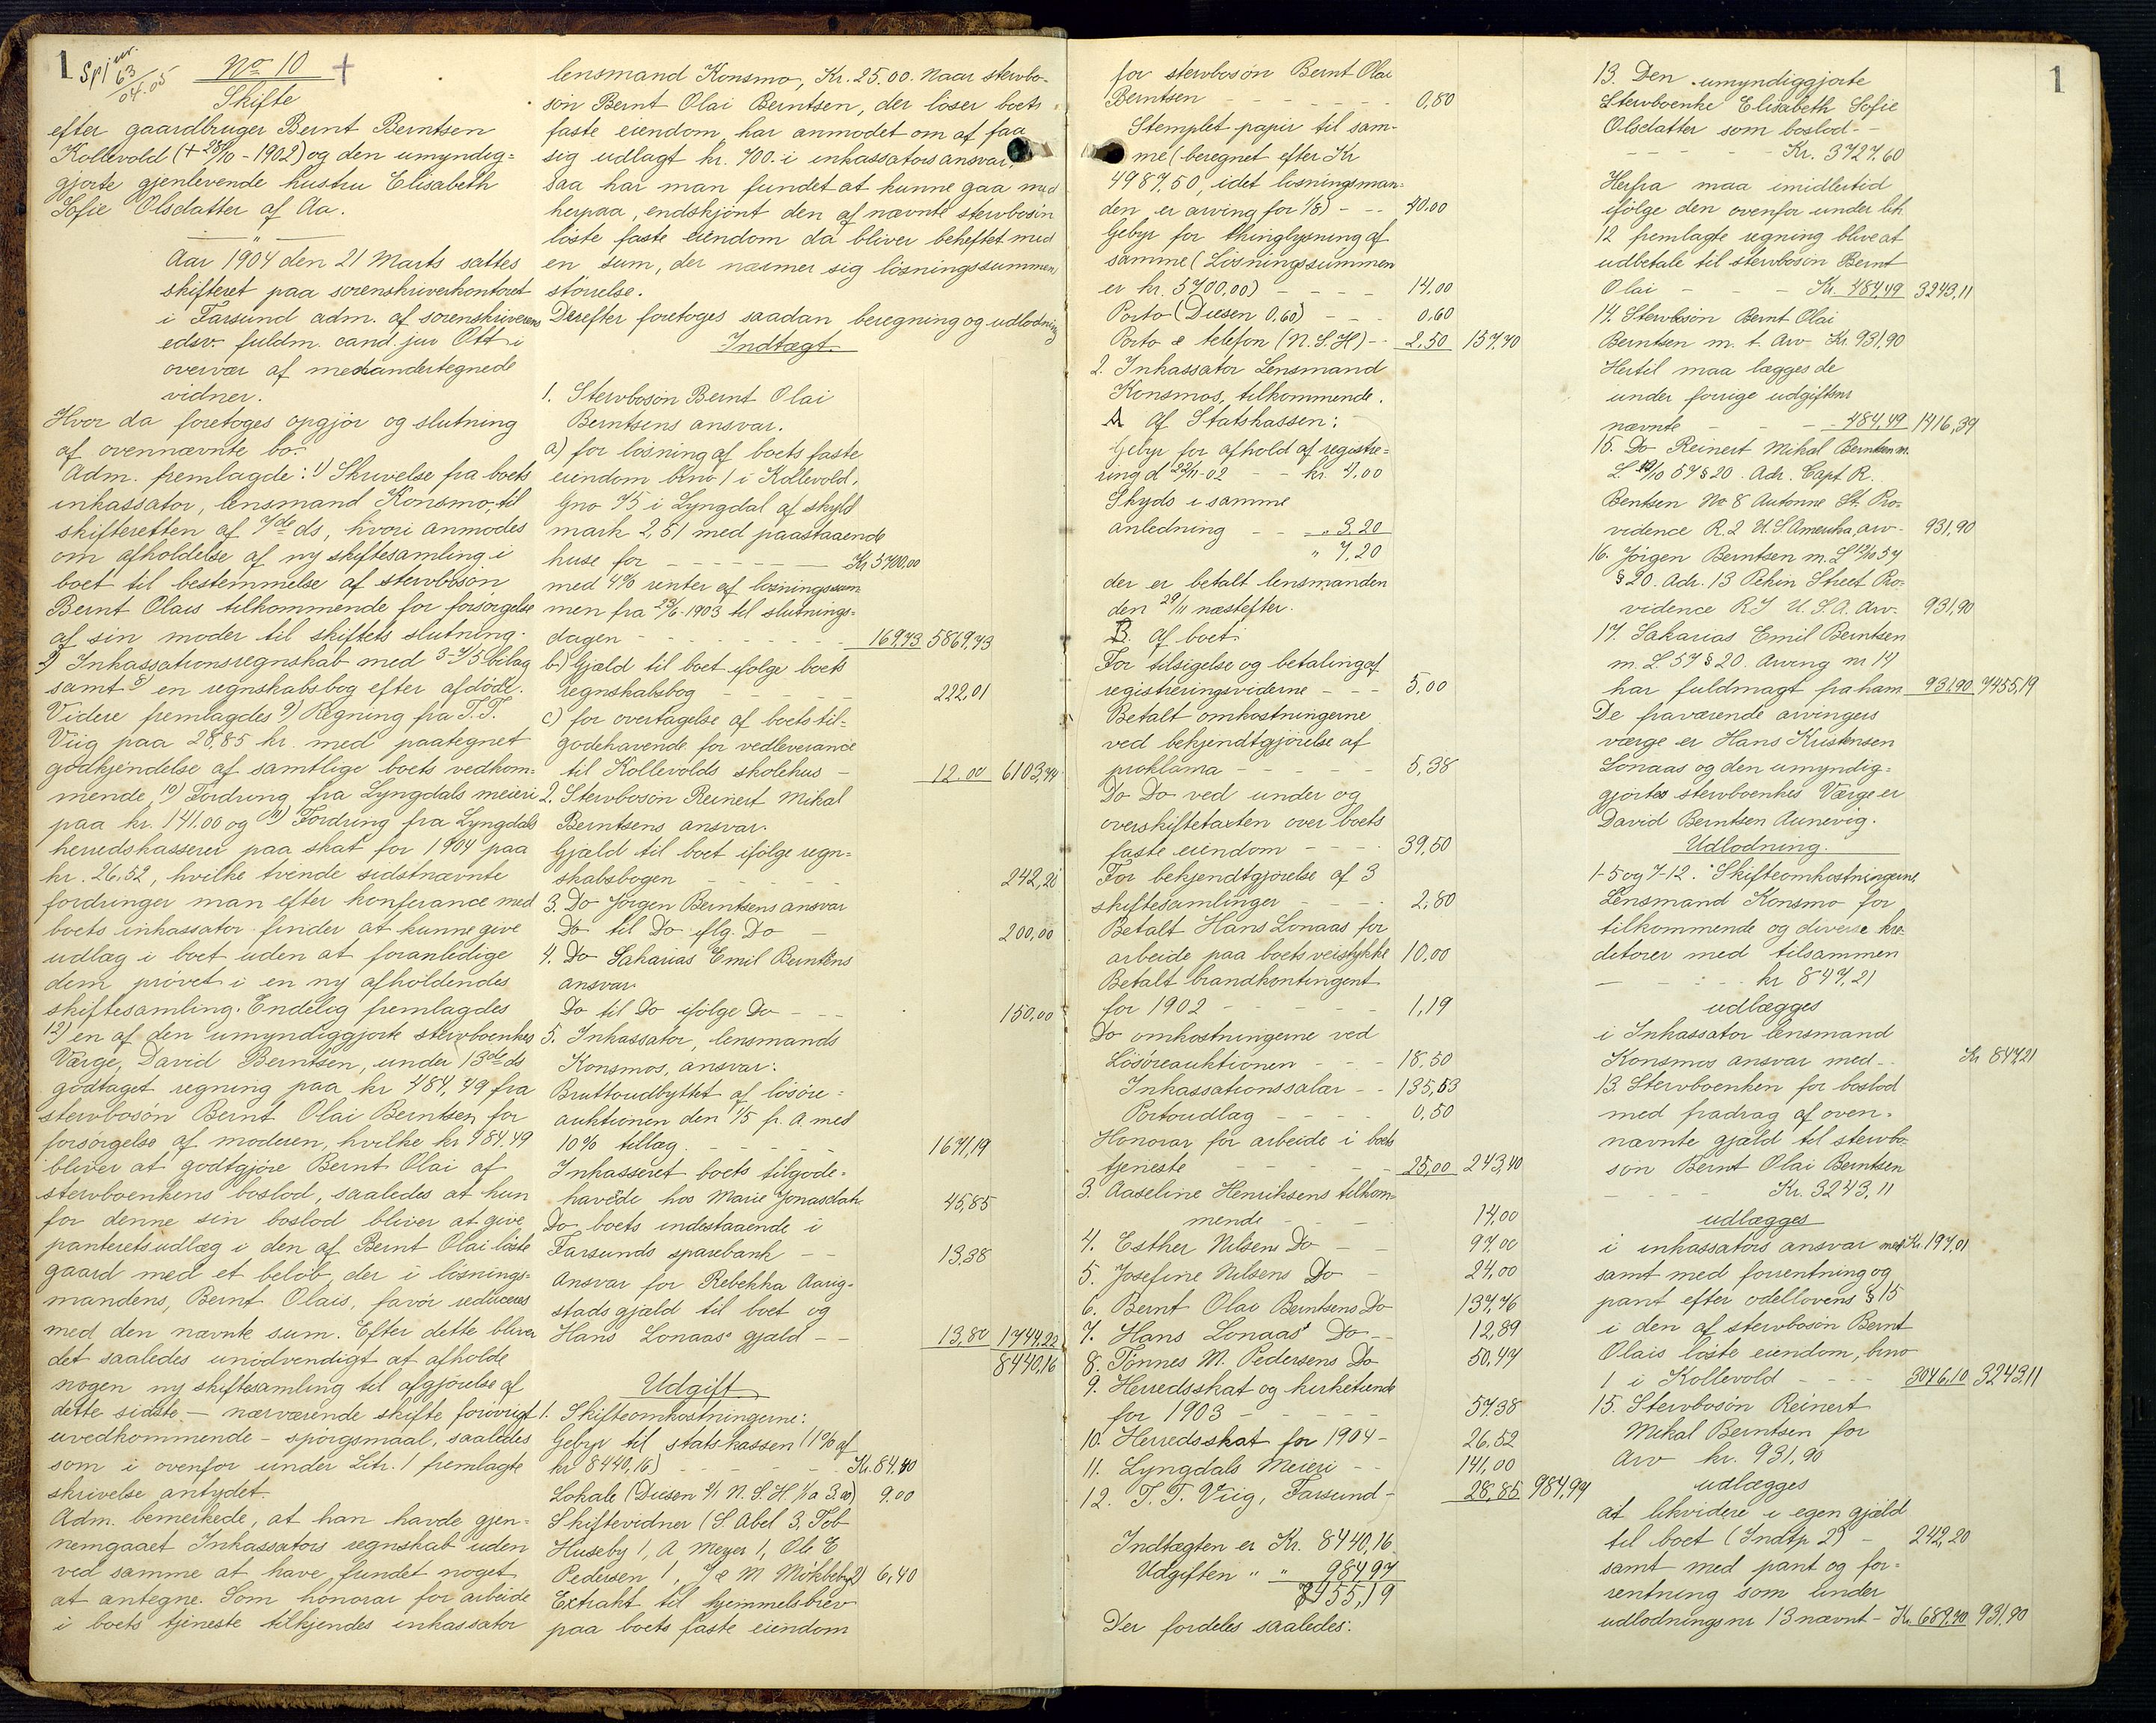 1
No 10
Skifte
efter gaardbruger Bernt Berntsen
Kollevold (+ 28/10 - 1902) og den umyndig=
gjorte gjenlevende hustru Elisabeth
Sofie Olsdatter af Aa.
Aar 1904 den 21 Marts sattes
skifteret paa sorenskriverkontoret
i Farsund adm. af sorenskriverens
edsv. fuldm. cand. jur Ott i
overvær af medundertegnede
vidner.
Hvor da foretoges opgjør og slutning
af ovennævnte bo.
Adm. fremlagde: 1) Skrivelse fra boets
inkassator, lensmand Konsmo, til
skifteretten af 7de ds, hvori anmodes
om afholdelse af ny skiftesamling i
boet til bestemmelse af stervbosøn
Bernt Olais tilkommende for forsørgelse
af sin moder til skiftets slutning.
2) Inkassationsregnskab med 3-7/5 bilag
samt 8) en regnskabsbog efter afdøde.
Videre fremlagdes 9) Regning fra T. T.
Viig paa 28,85 kr. med paategnet
godkjendelse af samtlige boets vedkom=
mende, 10) Fordring fra Lyngdals meieri
paa kr. 141.00 og 11) Fordring fra Lyngdals
herredskasserer paa skat for 1904 paa
kr. 26.52, hvilke tvende sidstnævnte
fordringer man efter konferance med
boets inkassator finder at kunne give
udlæg i boet uden at foranledige
dem prøvet i en ny afholdendes
skiftesamling. Endelig fremlagdes
12) en af den umyndiggjorte stervboenkes
Værge, David Berntsen, under 13de ds
godtaget regning paa kr 484,49 fra
stervbosøn Bernt Olai Berntsen for
forsørgelse af moderen, hvilke kr 484.49
bliver at godtgjøre Bernt Olai af
stervboenkens boslod, saaledes at hun
for denne sin boslod bliver at give
panteretsudlæg i den af Bernt Olai løste
gaard med et beløb, der i løsnings=
mandens, Bernt Olais, favør reduceres
med den nævnte sum. Efter dette bliver
det saaledes unødvendigt at afholde
nogen ny skiftesamling til afgjørelse af
dette sidste - nærværende skifte forøvrigt
uvedkommende - spørgsmaal, saaledes
som i ovenfor under Litr. 1 fremlagte
skrivelse antydet.
Adm. bemerkede, at han havde gjen=
nemgaaet Inkassators regnskab uden
ved samme at have fundet noget
at antegne. Som honorar for arbeide
i boets tjeneste tilkjendes inkassator
lensmand Konsmo, Kr. 25.00. Naar stervbo-
søn Bernt Olai Berntsen, der løser boets
faste eiendom, har anmodet om at faa
sig udlagt kr. 700.- i inkassators ansvar,
saa har man fundet at kunne gaa med
herpaa, endskjønt den af nævnte stervbosøn
løste faste eiendom da bliver beheftet med
en sum, der nærmer sig løsningssummens
størrelse.
Derefter foretoges saadan beregning og udlodning
Indtægt.
1. Stervbosøn Bernt Olai
Berntsens ansvar.
a) for løsning af boets faste
eiendom bno 1 i Kollevold,
Gno 75 i Lyngdal af skyld
mark 2,51 med paastaaende
huse for - - - Kr 5700,00
med 4% renter af løsningssum
men fra 25/6-1903 til slutnings=
dagen - - - 169,43 5869,43
b) Gjæld til boet ifølge boets
regnskabsbog - - - 222,01
c) for overtagelse af boets til=
godehavende for vedleverance
til Kollevolds skolehus - 12.00 6103,44
2. Stervbosøn Reinert Mikal
Berntsens ansvar.
Gjæld til boet ifølge regn=
skabsbogen - - - 242,20
3. Do Jørgen Berntsens ansvar
Do til Do iflg. Do - 200,00
4. Do Sakarias Emil Berntsens
ansvar
Do til Do ifølge Do - - - 150,00
5. Inkassator, lensmands
Konsmos, ansvar:
Bruttoudbyttet af løsøre=
auktionen den 1/5 f. A. med
10% tillæg - - - 1671,19
Inkasseret boets tilgode=
havende hos Marie Jonasdatt. 45,85
Do boets indestaaende i
Farsunds sparebank - - 13,38
Ansvar for Rebekka Aarig-
stads gjæld til boet og
Hans Lonaas' gjæld - - 13,80 1744,22
8440,16
Udgift
1. Skifteomkostningerne:
Gebyr til statskassen (1% af
kr 8440,16) - - - Kr. 84,40
Lokale (Diesen 2/1 N. S. H. 1/1 a 3.00) 9.00
Skiftevidner (S. Abel 3, Tob
Huseby 1, A Meyer 1, Ole E
Pedersen 1, 6,40
Extrakt til hjemmelsbrev
paa boets faste eiendom
1
for stervbosøn Bernt Olai
Berntsen - - - 0,80
Stemplet papir til sam-
me (beregnet efter Kr
4987,50, idet løsningsman=
den er arving for 1/8) - - - 40.00
Gebyr for thinglysning af
samme (Løsningssummen
er kr. 5700,00) - - - 14,00
Porto (Diesen 0.60) - - - 0,60
Porto & telefon (N. S. H) - - 2,50 157,70
2. Inkassator Lensmand
Konsmos, tilkommende.
A Af Statskassen:
Gebyr for afhold af registre=
ring d 22/11-02 - - kr. 4,00
Skyds i samme
anledning - - " 3,20
" 7,20
der er betalt lensmanden
den 29/11 næstefter.
B. af boet:
For tilsigelse og betaling af
registreringsvidnerne - - - 5,00
Betalt omkostningerne
ved bekjendtgjørelse af
proklama - - - 5,38
Do Do ved under og
overskiftetaxten over boets
faste eiendom - - - 39,60
For bekjendtgjørelse af 3
skiftesamlinger - - - 2,80
Betalt Hans Lonaas for
arbeide paa boets veistykke 10,00
Betalt brandkontingent
for 1902 - - - 1,19
Do omkostningerne ved
Løsøreauktionen - - - 18,50
Inkassationssalær - - 135,63
Portoudlæg - - - 0,50
Honorar for arbeide i boets
tjeneste - - - 25,00 243,40
3. Aaseline Henriksens tilkom=
mende - - - 14,00
4. Esther Nilsens Do - - 97,00
5. Josefine Nilsens Do - 24,00
6. Bernt Olai Berntsens Do 137,76
7. Hans Lonaas' Do - - 12,89
8. Tønnes M. Pedersens Do 50,47
9. Herredsskat og kirketiende
for 1903 - - - 57.38
10. Herredsskat for 1904 - 26,52
11. Lyngdals Meieri - - 141,00
12. T. T. Viig, Farsund - 28,85 984,97
Indtægten er Kr. 8440,16
Udgiften " " 984,97
7455,19
Der fordeles saaledes:
13. Den umyndiggjorte
Stervboenke Elisabeth Sofie
Olsdatter som boslod - -
- - - Kr. 3727.60
Herfra maa imidlertid
ifølge den ovenfor under litr.
12 fremlagte regning blive at
udbetale til stervbosøn Bernt
Olai - - - Kr. 484,49 3243,11
14. Stervbosøn Bernt Olai
Berntsen m. t. Arv Kr. 931,90
Hertil maa lægges de
under forrige udgiftsnr
nævnte - - - 484,49 1416,39
15. Do Reinert Mikal Berntsen m.
L. 12/10 57 § 20. Adr. Capt. R.
Bentsen No 8 Autonne St. Pro=
vidence R. I. U. S Amerika, arv - 931,90
16. Jørgen Berntsen m. L 12/10 57
§ 20. Adr. 13 Pekin Street Pro=
vidence R I U. S. A. Arv - 931,90
17. Sakarias Emil Berntsen
m. L. 57 § 20. Arving nr 14
har fuldmagt fra ham 931,90 7455,19
De fraværende arvingers
værge er Hans Kristensen
Lonaas og den umyndig=
gjortes stervboenkes Værge er
David Berntsen Aunevig.
Udlodning.
1-5 og 7-12. Skifteomkostningerne,
Lensmand Konsmo for
tilkommende og diverse kre=
ditorer med tilsammen
- - - kr 847,21
udlægges
i Inkassator lensmand
Konsmos ansvar med - - Kr 847,21
13. Stervboenken for boslod
med fradrag af oven=
nævnte gjæld til stervbo=
søn Bernt Olai Berntsen
- - - Kr. 3243,11
udlægges
i inkassators ansvar med Kr. 197,01
samt med forrentning og
pant efter odellovens § 15
i den af stervbosøn Bernt
Olais løste eiendom, bno
1 i Kollevold - - - 3046,10 3243,11
15. Stervbosøn Reinert
Mikal Berntsen for
Arv kr. 931,90
udlægges
at likvidere i egen gjæld
til boet (Indtp 2) - 242,20
samt med pant og for=
rentning som under
udlodningsnr 13 nævnt - Kr. 689,70 931,90